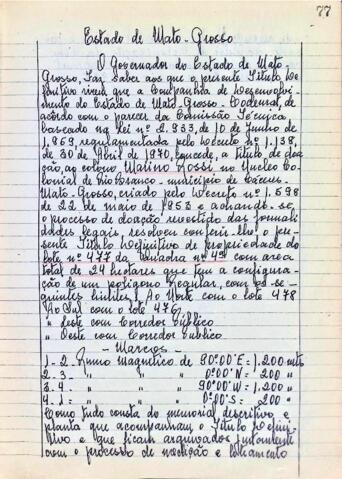 77
Estado de Mato-Grosso
O Governador do Estado de Mato-
Grosso, Faz saber aos que o presente Titulo De
finitivo virem que a Companhia de Desenvolvi-
mento do Estado de Mato-Grosso-Codemat, de
acordo com o parecer da Comissão Técnica,
baseado na lei nº 2.933, de 10 de Junho de
1.969, regulamentada pelo Decreto nº 1.138,
de 30 de Abril de 1970, concede, a titulo de doa
ção, ao colono Marino Rossi no Núcleo Co
lonial de Rio Branco - município de Cáceres -
Mato-Grosso, criado pelo Decreto nº 1.598
de 22 de maio de 1953 e achando-se,
o processo de doação revestido das formali
dades legais, resolveu conferir-lhe o pre-
sente Titulo Definitivo de propriedade do
lote nº 477 da Quadra nº 4 com area
total de 24 hectares que tem a configura-
ção de um poligono Regular, com os se-
guintes limites: Ao Norte com o lote 478
Ao Sul com o lote 476,
" Leste com Corredor Publico
" Oeste com Corredor Publico
- Marcos -
1-2- Rumo Magnético de 90º00'E=1.200 mts
2-3- " " " 0º00'N= 200 "
3-4- " " " 90º00'W=1.200 "
4-1= " " " 0º00'S= 200 "
Como tudo consta do memorial descritivo e
planta que acompanham o Titulo Defini-
tivo e que ficam arquivados juntamente
com o processo de medição e loteamento